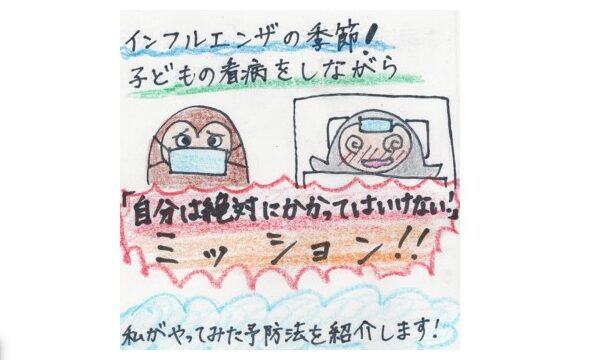 インフルエンザの季節!
子どもの看病をしながら
「自分は絶対にかかってはいけない!」
ミッション!!
私がやってみた予防法を紹介します!